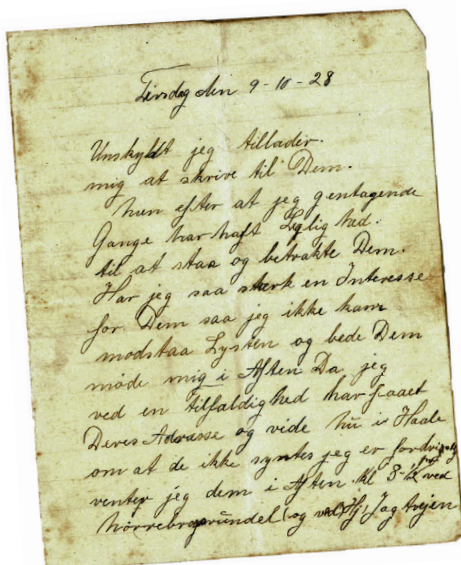 Tirsdag den 9-10-28
Unskyldt jeg tillader.
mig at skrive til Dem.
men efter at jeg gentagende
Gange har haft Lejlighed.
til at staa og betrakte Dem.
Har jeg saa stærk en Interesse
for Dem saa jeg ikke kan
modstaa Lysten og bede Dem
møde mig i Aften Da jeg
ved en tilfældighed har faaet
Deres Adrasse og vide nu i Haab
om at de ikke syntes jeg er
venter jeg dem i Aften kl 8 ved
Nørrebrogrundel og ved Jagtvejen